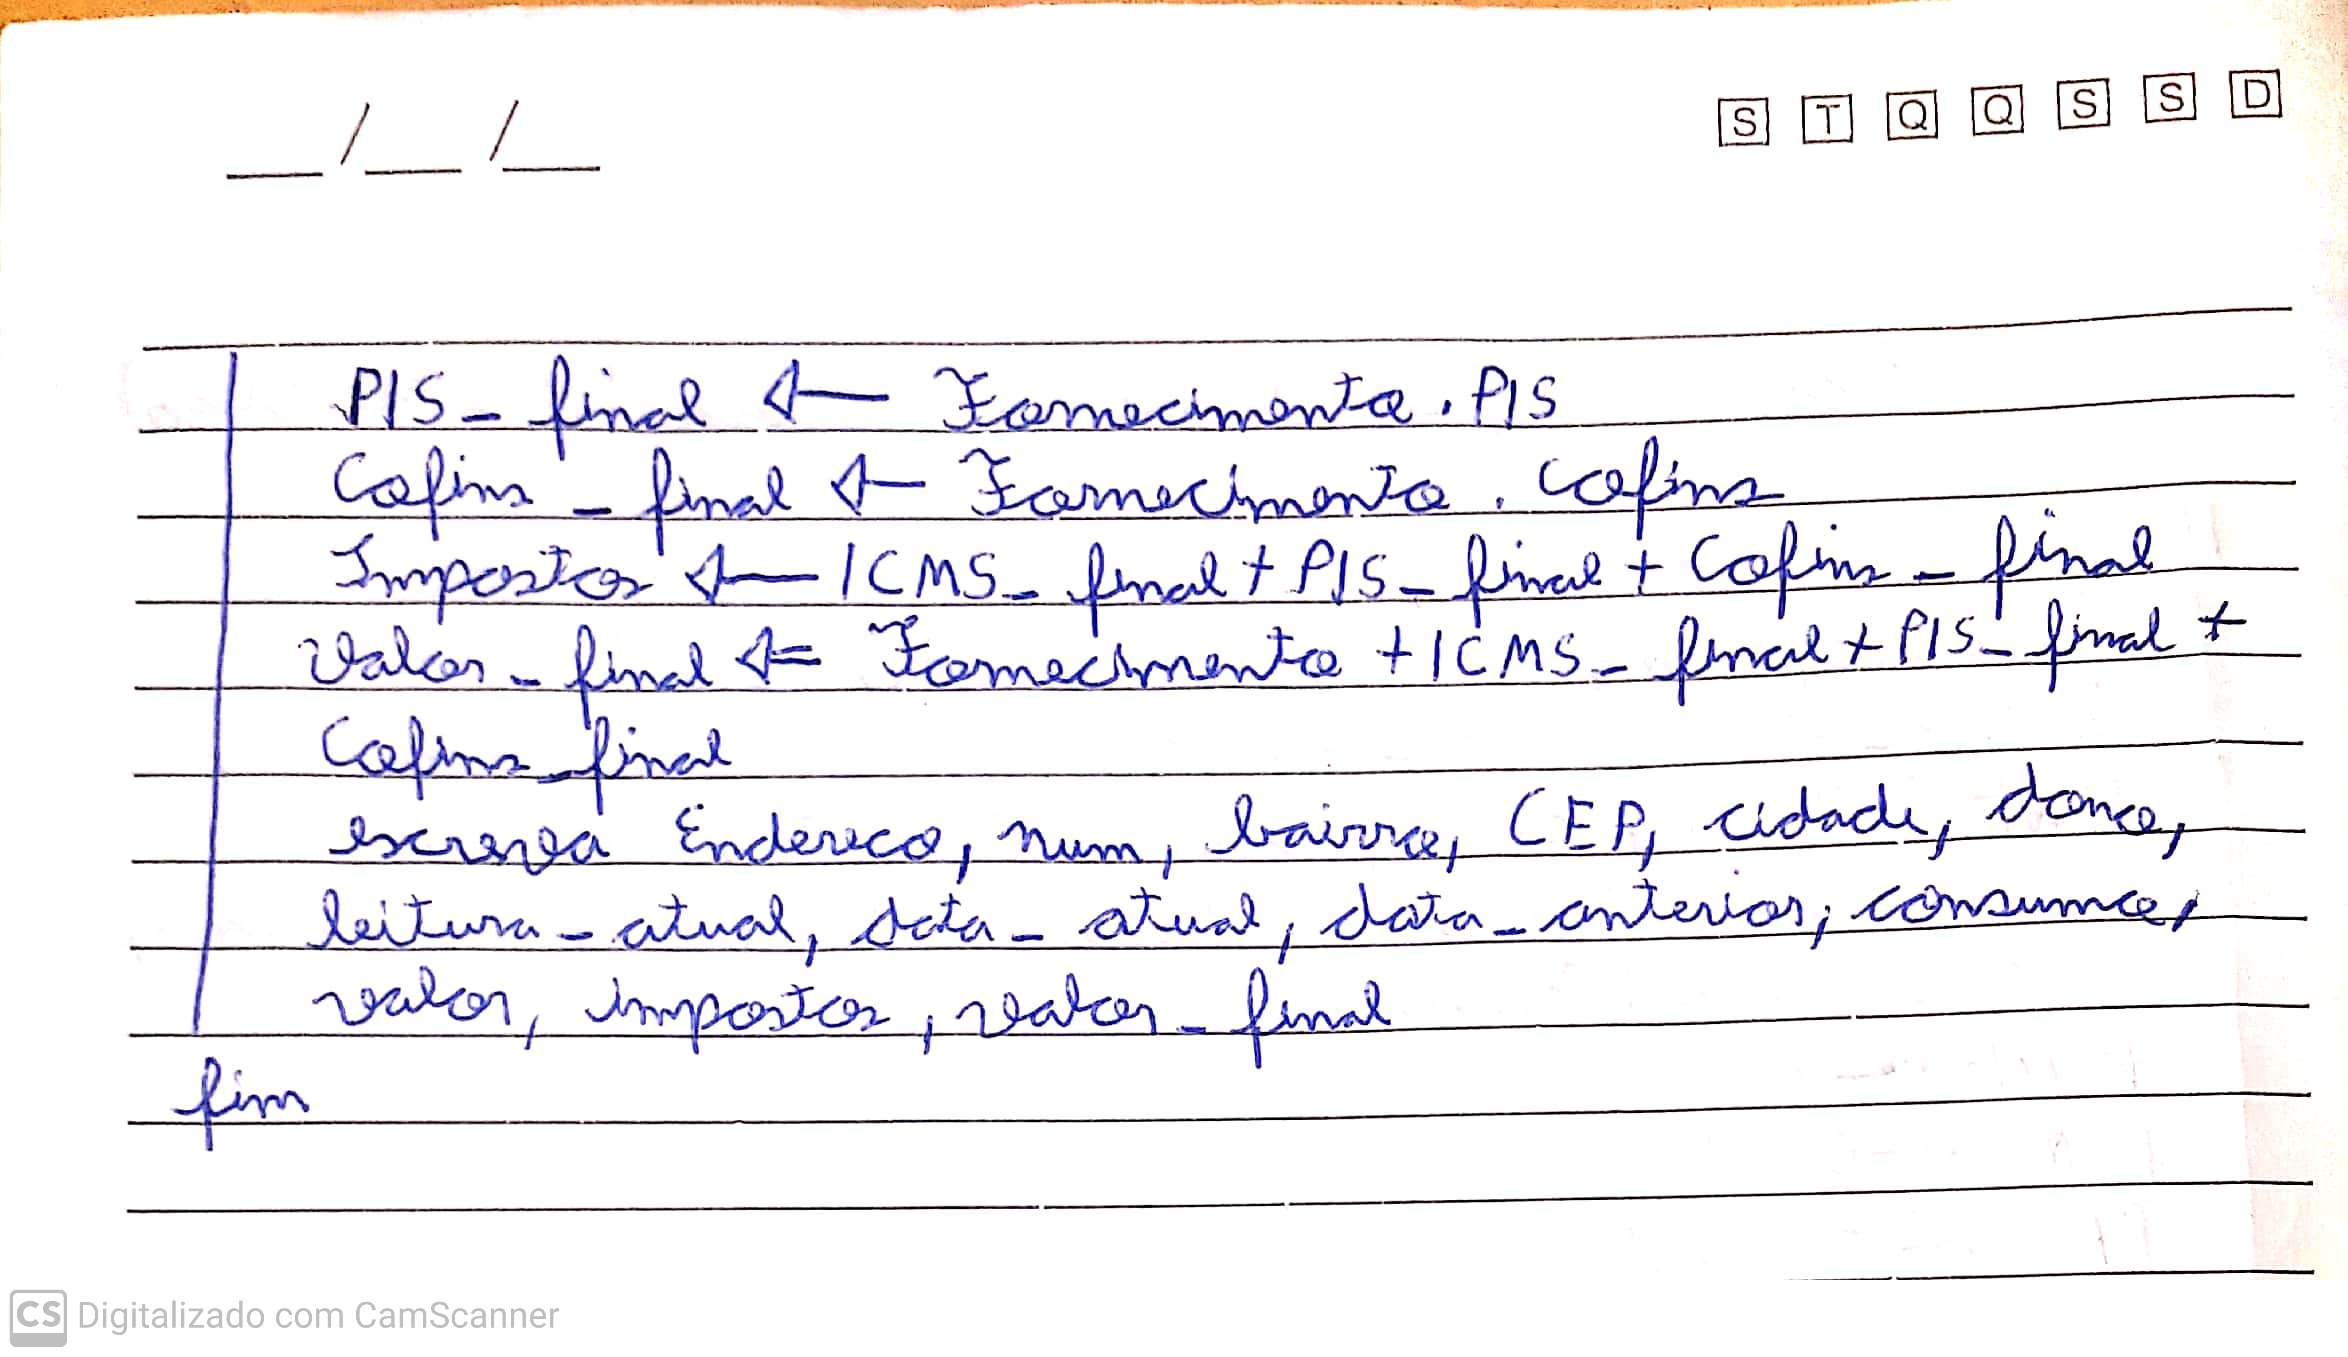 __/__/__ S T Q Q S S D
PIS_final ← Fornecimento . PIS
Cofins_final ← Fornecimento . cofins
Impostos ← ICMS_final + PIS_final + Cofins_final
Valor_final ← Fornecimento + ICMS_final + PIS_final +
Cofins_final
escreva Endereco, num, bairro, CEP, cidade, dono,
leitura_atual, data_atual, data_anterior, consumo,
valor, impostos, valor_final
fim
CS Digitalizado com CamScanner